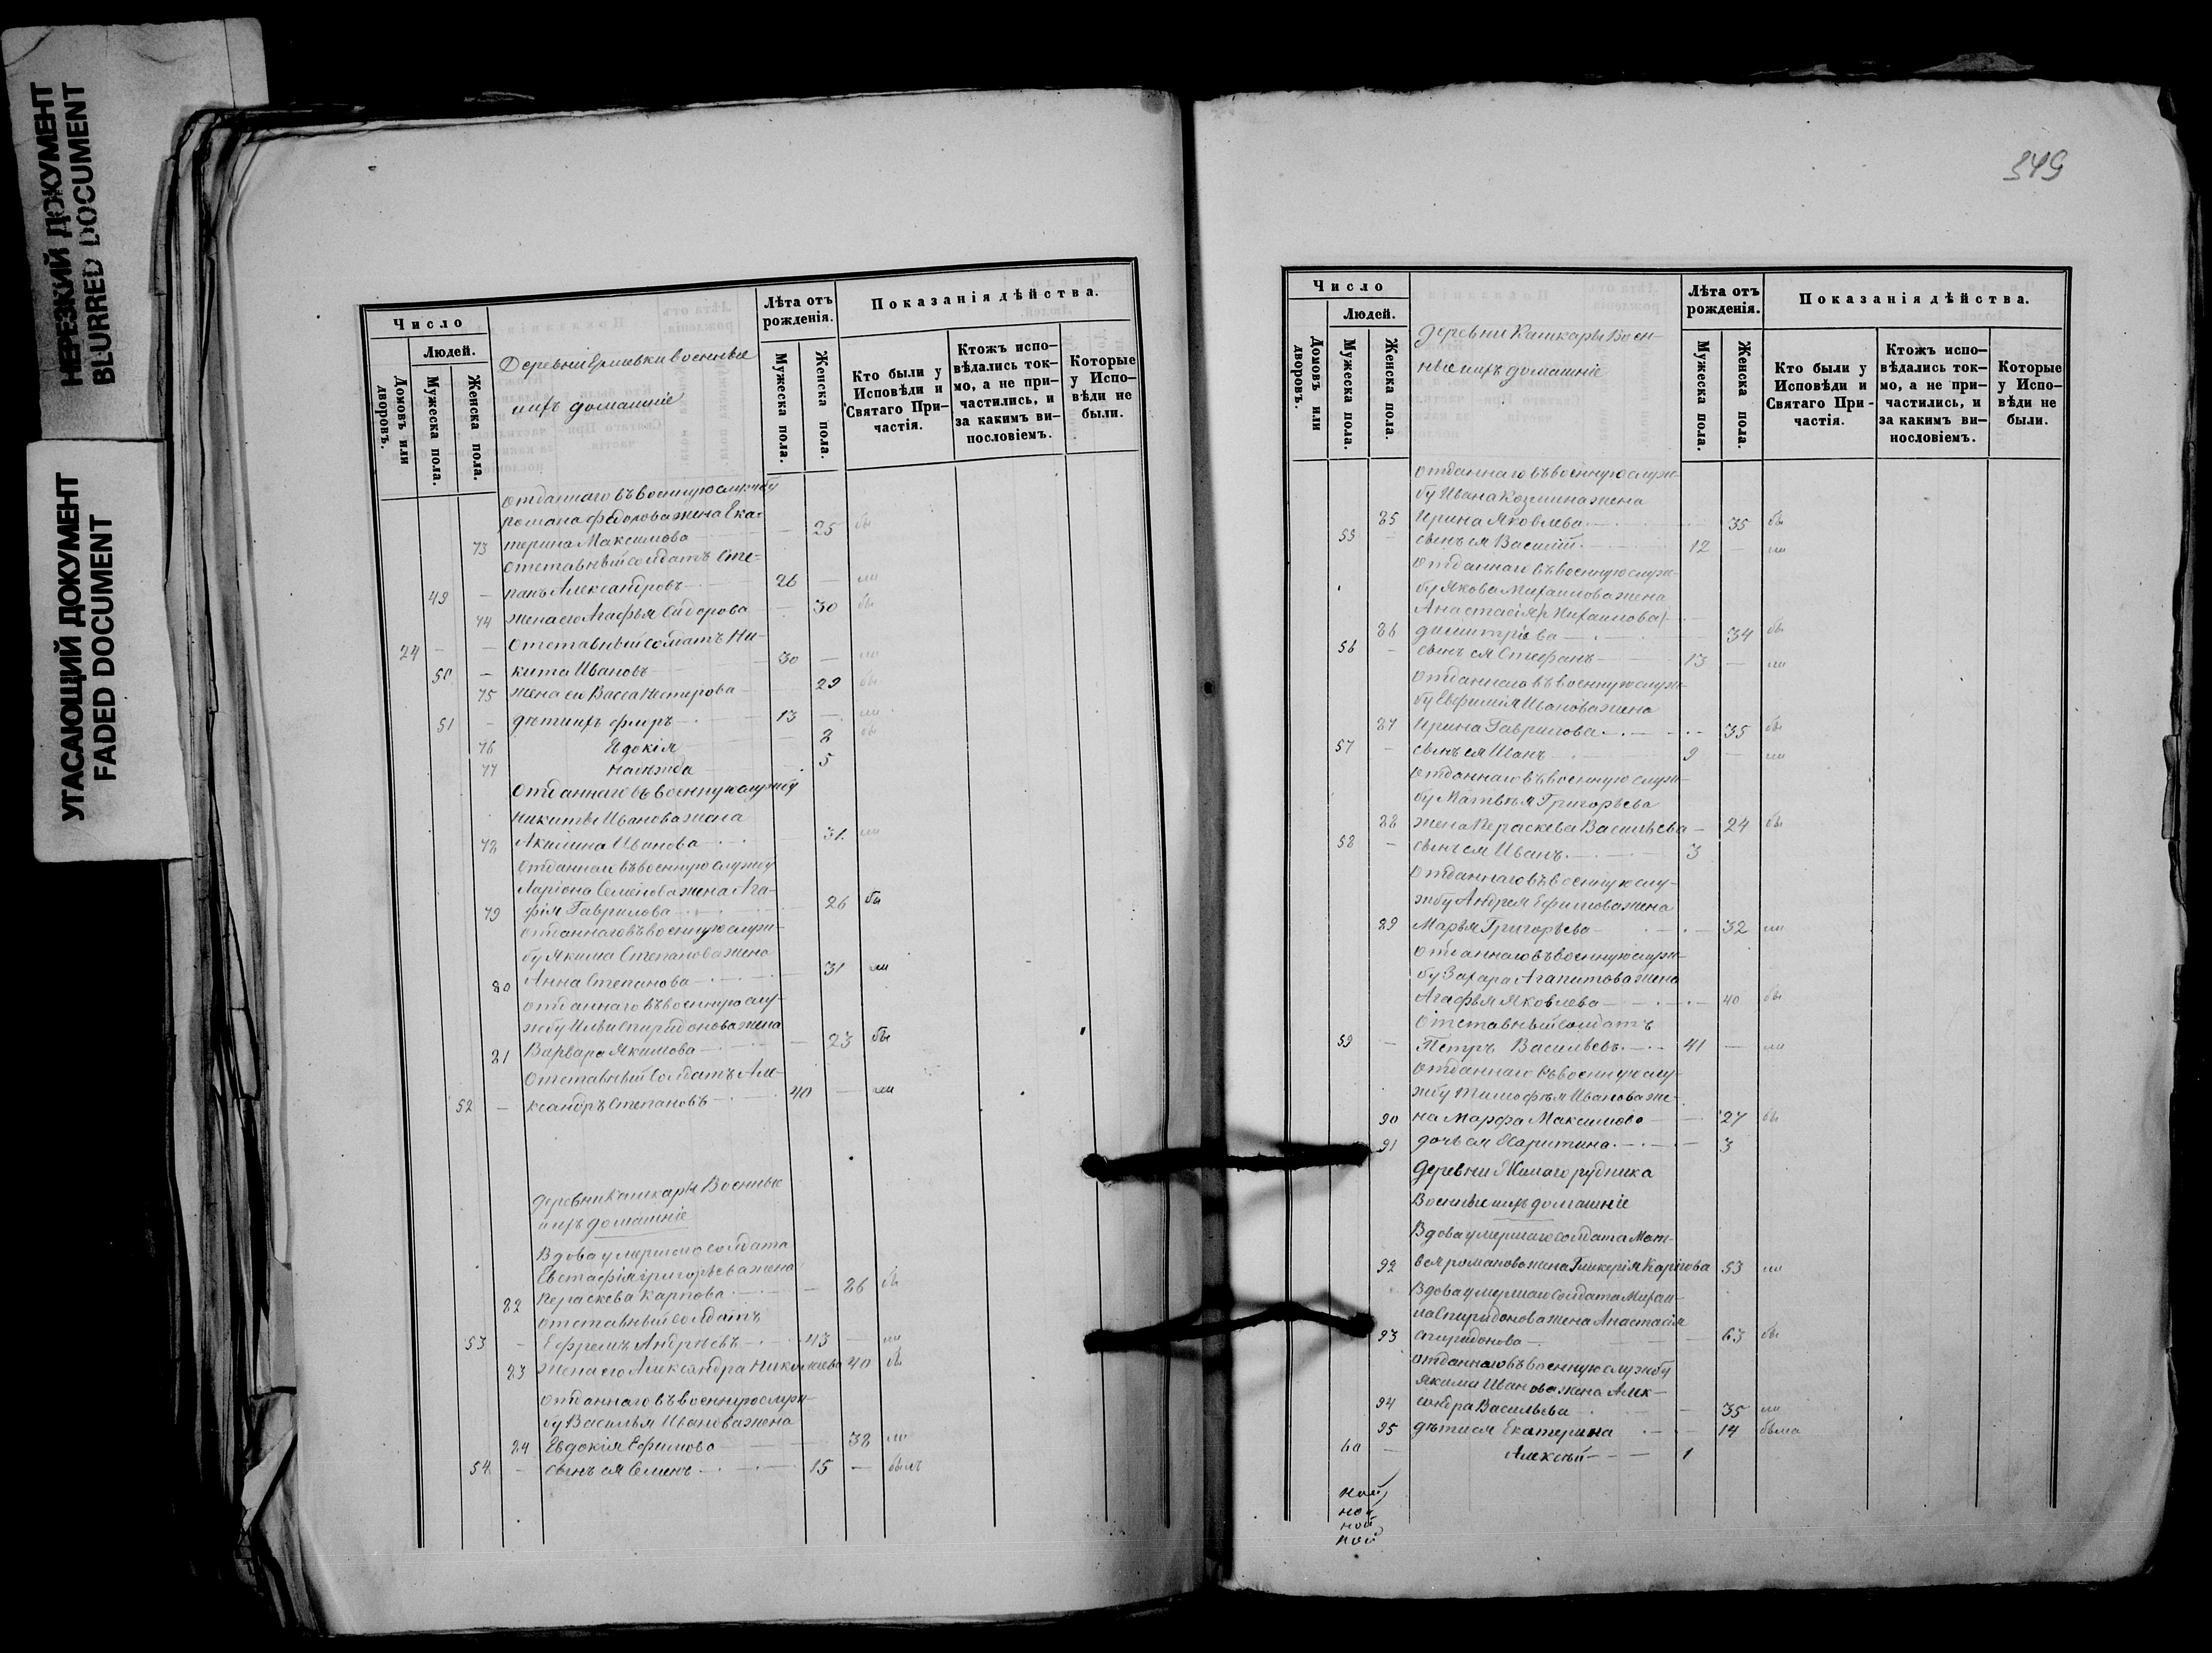 НЕРЕЗКИЙ ДОКУМЕНТ
BLURRED DOCUMENT
УГАСАЮЩИЙ ДОКУМЕНТ
FADED DOCUMENT
Число
Людей.
Домовъ или дворовъ.
Мужеска пола.
Женска пола.
Деревни Ермиевки военные
ихъ домашніе
Лѣта отъ рожденія.
Мужеска пола.
Женска пола.
Показанія дѣйства.
Кто были у Исповѣди и Святаго Причастія.
Ктожъ исповѣдались токмо, а не причастились, и за какимъ винословіемъ.
Которые у Исповѣди не были.
отданнаго въ военную службу
романа федорова жена Ека-
73 терина Максимова — 25 бы
отставный солдатъ Сте-
49 — панъ Александровъ 26 — ли
74 жена его Агафья Сидорова — 30 бы
24 — — Отставный солдатъ Ни-
50 — кита Ивановъ 30 — ли
75 жена его Васса Нестерова — 29 бы
51 — дѣти ихъ 13 — ли
76 Евдокія — 8 бы
77 надежда 5
отданнаго въ военную службу
никиты Иванова жена
78 Акилина Иванова 31 ли
отданнаго въ военную службу
Ларіона Семенова жена Ага-
79 фія Гаврилова 26 бы
отданнаго въ военную служ-
бу Якима Степанова жена
80 Анна Степанова 31 ли
отданнаго въ военную слу-
жбу Ильи спиридонова жена
81 Варвара Якимова — 23 бы
Отставный солдатъ Але-
52 — ксандръ Степановъ 40 — ли
деревни Кашкары Военные
ихъ домашніе
Вдова умершаго солдата
Евстафія григорьева жена
82 Пераскева Карпова — 86 бы
отставный солдатъ
53 — Ефремъ Андрѣевъ 43 — ли
83 жена его Александра Николаева 40 бы
отданнаго въ военную служ-
бу Василья Иванова жена
84 Евдокія Ефимова 38 ли
54 — сынъ ея Семенъ 15 — былъ
349
Число
Людей.
Домовъ или дворовъ.
Мужеска пола.
Женска пола.
деревни Кашкары Воен-
ные ихъ домашніе
Лѣта отъ рожденія.
Мужеска пола.
Женска пола.
Показанія дѣйства.
Кто были у Исповѣди и Святаго Причастія.
Ктожъ исповѣдались токмо, а не причастились, и за какимъ винословіемъ.
Которые у Исповѣди не были.
отданнаго въ военную служ-
бу Ивана Козмина жена
85 Ирина Яковлева 35 бы
55 — сынъ ея Василій 12 — ли
отданнаго въ военную служ-
бу Якова Михаилова жена
Анастасія (Михаилова)
86 димитріева 34 бы
56 — сынъ ея Стефанъ 13 — ли
отданнаго въ военную служ-
бу Евфимія Иванова жена
87 Ирина Гаврилова 35 бы
57 — сынъ ея Иванъ 9 — ли
отданнаго въ военную служ-
бу Матвѣя Григорьева
88 жена Пераскева Васильева — 24 бы
58 — сынъ ея Иванъ 3
отданнаго въ военную слу-
жбу Андрея Ефимова жена
89 Марья Григорьева — 32 ли
отданнаго въ военную служ-
бу Захара Агапитова жена
Агафья Яковлева — 40 бы
Отставный солдатъ
59 — Петръ Васильевъ 41 — ли
отданнаго въ военную слу-
жбу Тимофѣя Иванова же-
90 на Марфа Максимова — 27 бы
91 дочь ея Харитина — 3
Деревни рудника
Военные ихъ домашніе
Вдова умершаго солдата Мат-
92 вея романова жена Гликерія 53 ли
Вдова умершаго солдата Михаи-
ла Спиридонова жена Анастасія
93 спиридонова — 63 бы
отданнаго въ военную службу
якима Иванова жена Алек-
94 сандра Васильева — 35 ли
95 дѣти ея Екатерина — 14 была
60 — Алексѣй 1
ной
ной
ной
ной